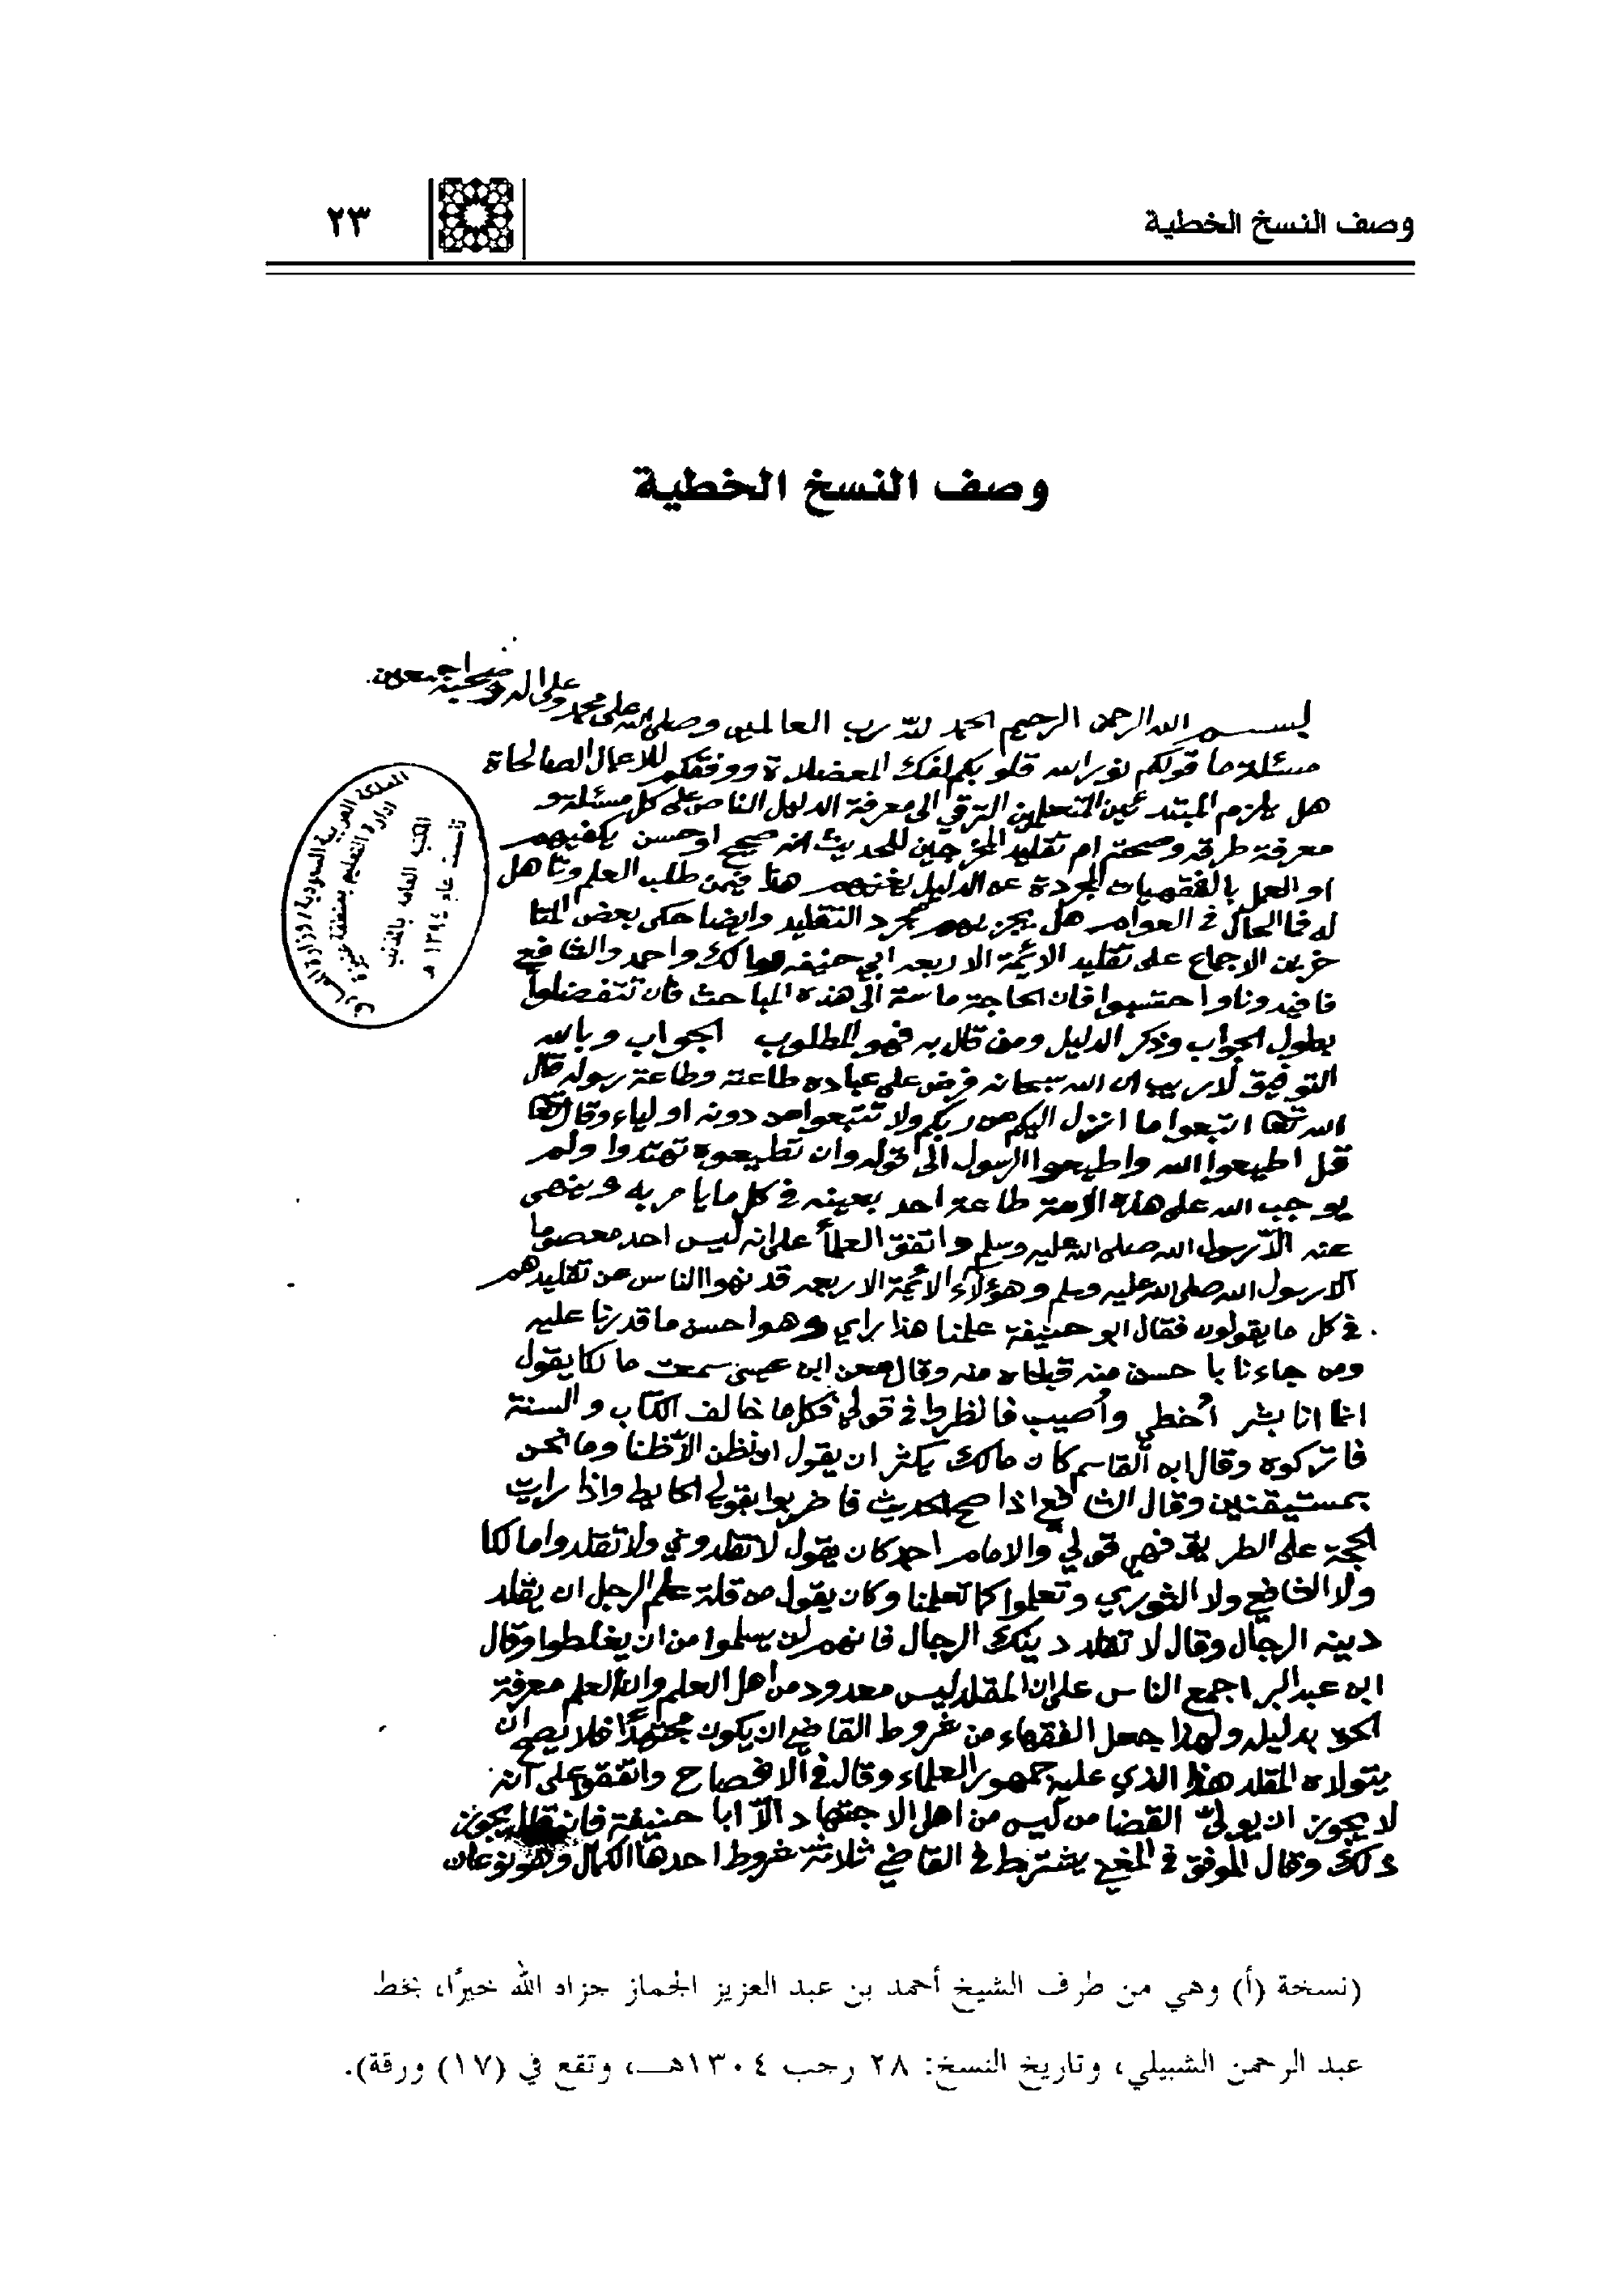 وصف النسخ الخطية
٢٣
وصف النسخ الخطية
بسم الله الرحمن الرحيم الحمد لله رب العالمين وصلى الله على محمد وعلى اله وصحبه اجمعين
مسئلة ما قولكم نور الله قلوبكم لفك المعضلاة ووفقكم للاعمال الصالحاة
هل يلزم المبتدئين المتعلمين الترقي الى معرفة الدليل الناص على كل مسئلة و
معرفة طرقه وصحته ام تقليد المخرجين للحديث انه صحيح او حسن يكفيهم
او العمل بالفقهيات المجردة عن الدليل يغنيهم هذا فيمن طلب العلم وتأهل
له فما الحال في العوام هل يجزيهم مجرد التقليد وايضا حكى بعض المتا
خرين الاجماع على تقليد الائمة الاربعه ابي حنيفه ومالك واحمد والشافعي
فافيدونا واحتسبوا فان الحاجة ماسة الى هذه المباحث فان تتفضلوا
بطول الجواب وذكر الدليل ومن قال به فهو المطلوب الجواب وبالله
التوفيق لا ريب ان الله سبحانه فرض على عباده طاعته وطاعة رسوله قال
الله تعا اتبعوا ما انزل اليكم من ربكم ولا تتبعوا من دونه اولياء وقال تعا
قل اطيعوا الله واطيعوا الرسول الى قوله وان تطيعوه تهتدوا ولم
يوجب الله على هذه الامة طاعة احد بعينه في كل ما يامر به وينهى
عنه الا رسول الله صلى الله عليه وسلم واتفق العلمأ على انه ليس احد معصوما
الا رسول الله صلى الله عليه وسلم وهؤلاء الائمة الاربعه قد نهوا الناس عن تقليدهم
في كل ما يقولون فقال ابو حنيفة علمنا هذا راي وهو احسن ما قدرنا عليه
ومن جاءنا باحسن منه قبلناه منه وقال معن ابن عيسى سمعت مالكا يقول
انما انا بشر أخطي وأصيب فانظروا في قولي فكل ما خالف الكتاب والسنة
فاتركوه وقال ابن القاسم كان مالك يكثر ان يقول ان نظن الا ظنا وما نحن
بمستيقنين وقال الشافعي اذا صح الحديث فاضربوا بقولي الحايط واذا رايت
الحجة على الطريق فهي قولي والامام احمد كان يقول لا تقلدوني ولا تقلدوا مالكا
ولا الشافعي ولا الثوري وتعلموا كما تعلمنا وكان يقول من قلة علم الرجل ان يقلد
دينه الرجال وقال لا تقلد دينك الرجال فانهم لن يسلموا من ان يغلطوا وقال
ابن عبد البر اجمع الناس على ان المقلد ليس معدود من اهل العلم وان العلم معرفة
الحق بدليله ولهذا جعل الفقهاء من شروط القاضي ان يكون مجتهدًا فلا يصح ان
يتولاه المقلد هذا الذي عليه جمهور العلماء وقال في الافصاح واتفقوا على انه
لا يجوز ان يولى القضا من ليس من اهل الاجتهاد الا ابا حنيفة فانه قال يجوز
ذلك وقال الموفق في المغني يشترط في القاضي ثلاثة شروط احدها الكمال وهو نوعان
المملكة العربية السعودية / وزارة المعارف
ادارة التعليم بمنطقة عنيزة
المكتبة العامه بالمذنب
تأسست عام ١٣٩٤ هـ
(نسخة (أ) وهي من طرف الشيخ أحمد بن عبد العزيز الجماز جزاه الله خيرًا، بخط
عبد الرحمن الشبيلي، وتاريخ النسخ: ٢٨ رجب ١٣٠٤هـ، وتقع في (١٧) ورقة).